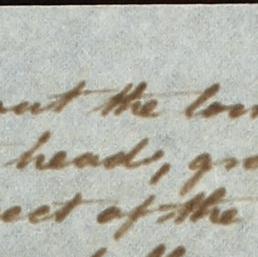 out the
head, gra
ect of the